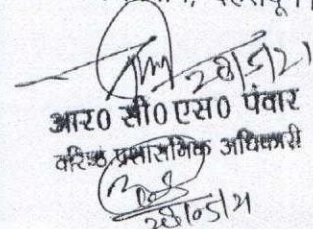 28/5/21
आर0 सी0 एस0 पंवार
वरिष्ठ प्रशासनिक अधिकारी
28/05/21